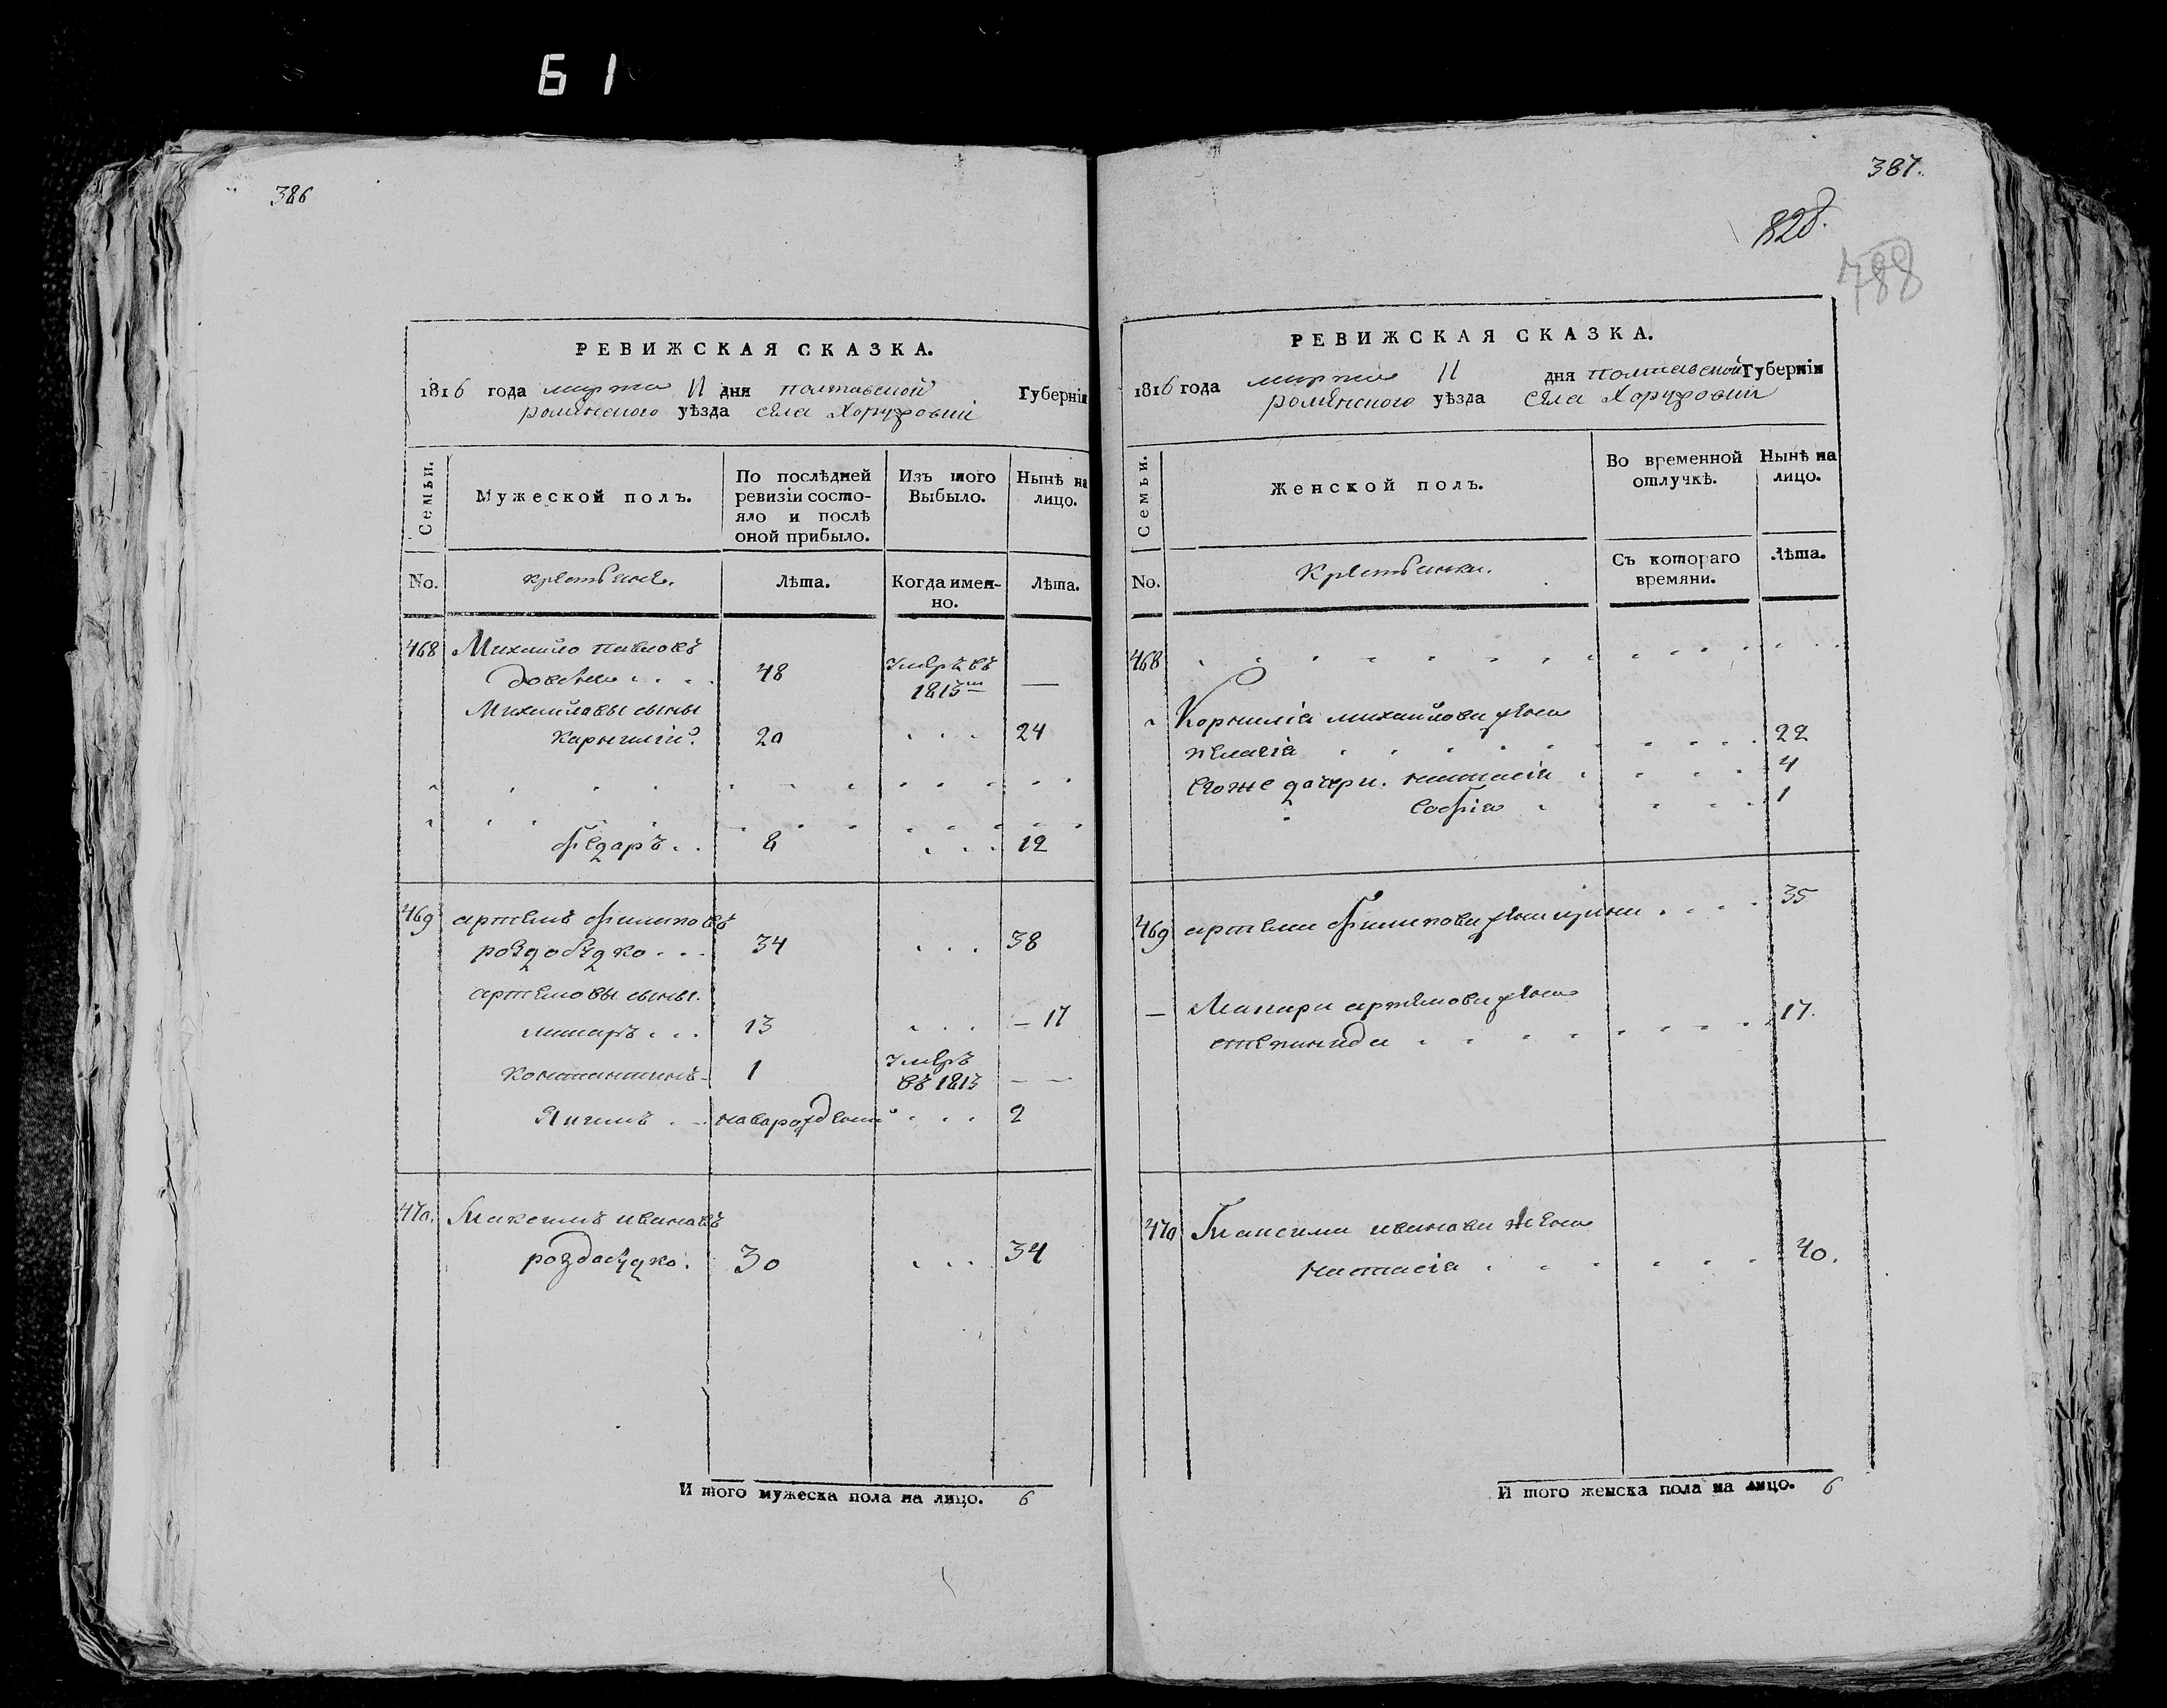 61
386
РЕВИЖСКАЯ СКАЗКА.
1816 года марта 11 дня полтавской Губерніи
роменского уѣзда села Хоружовки
Семьи.
Мужеской полъ.
По послѣдней ревизіи состояло и послѣ оной прибыло.
Изъ того Выбыло.
Нынѣ на лицо.
No.
крестьяне.
Лѣта.
Когда именно.
Лѣта.
468 Михайло павловъ
48 умеръ въ 1815м —
Михайловы сыны
Карнилій 20 . . . 24
Федаръ . . 8 . . . 12
469 артемъ филиповъ
роздобудко . . . 34 . . . 38
артемовы сыны.
макаръ . . . 13 . . . — 17
константинъ — 1 умеръ въ 1813 — —
Якимъ . . новорожденный . . . 2
470. Максимъ ивановъ
роздабудко. 30 . . . 34
И того мужеска пола на лицо. 6
387.
828.
788
РЕВИЖСКАЯ СКАЗКА.
1816 года марта 11 дня полтавской Губерніи
роменского уѣзда села Хоружовки
Семьи.
Женской полъ.
Во временной отлучкѣ.
Нынѣ на лицо.
No.
Крестьянки.
Съ котораго времяни.
Лѣта.
468
Корнилія михайлова жена
пелагія 22
Егоже дочери. настасія 4
софія 1
469 артема филипова жена ирина . . . . 35
— Макара артемова жена
степанида 17.
470 Максима иванова жена
Настасія 40.
И того женска пола на лицо. 6